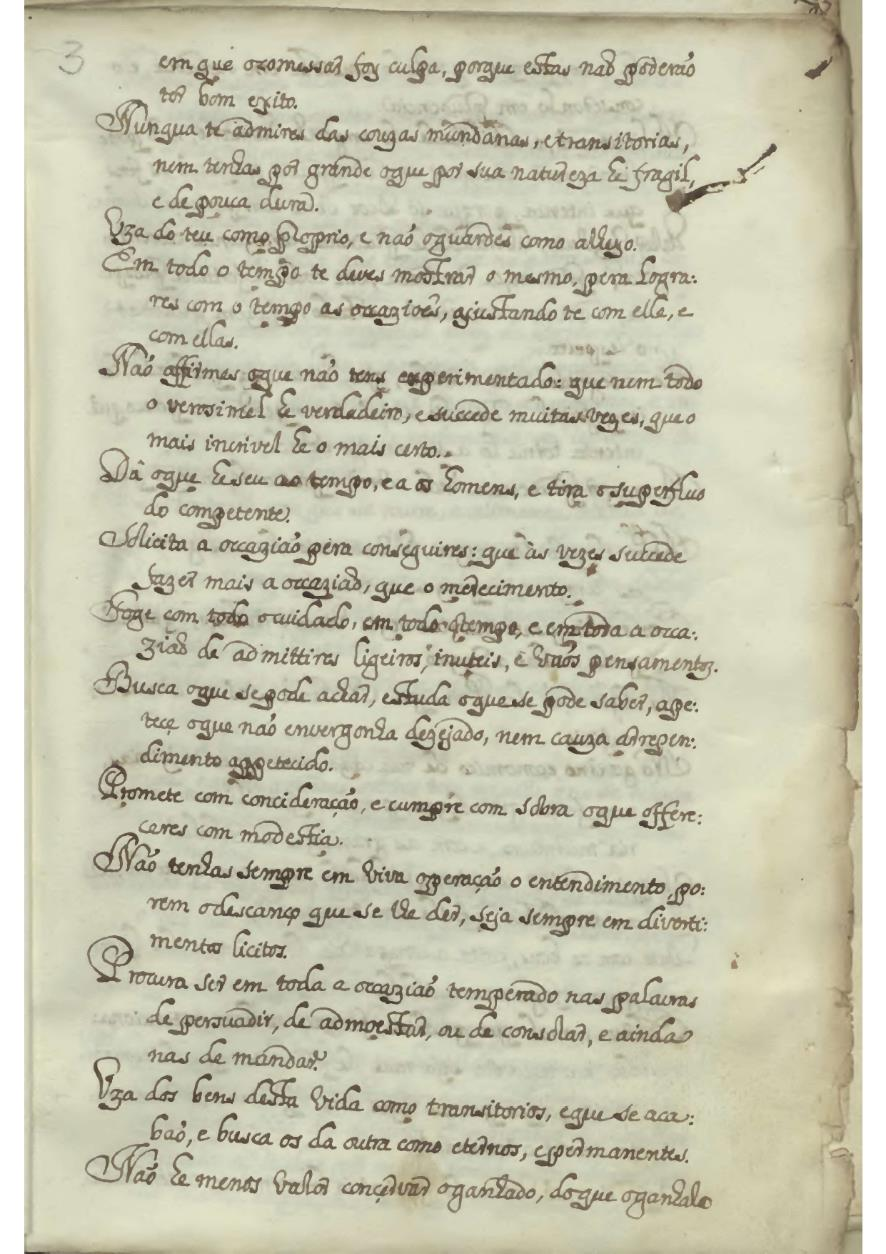 3
em que o comessar foy culpa, porque estas naõ poderaõ
ter bom exito.
Nunqua te admires das couzas mundanas, e transitorias,
nem tenhas por grande oque por sua natureza he fragil,
e de pouca dura.
Vza do teu como proprio, e naõ oguardes como alheyo.
Em todo o tempo te deves mostrar o mesmo, pera logra:
res com o tempo as occazioẽs, ajustando te com elle, e
com ellas.
Naõ affirmes oque não tens experimentado: que nem todo
o verosimel he verdadeiro, e succede muitas vezes, que o
mais incrivel he o mais certo.
Dâ oque he seu ao tempo, e a os homens, e tira o superfluo
do competente.
Solicita a occaziaõ pera conseguires: que às vezes succede
fazer mais a occaziaõ, que o merecimento.
Foge com todo o cuidado, em todo otempo, e em toda a occa:
ziaõ de admittires ligeiros, inuteis, e vaõs pensamentos.
Busca oque se pode achar, estuda oque se pode saber, ape:
tece oque naõ envergonha dezejado, nem cauza arrepen:
dimento appetecido.
Promete com concideração, e cumpre com sobra oque offere:
ceres com modestia.
Naõ tenhas sempre em viva operação o entendimento, po:
rem odescanço que se lhe der, seja sempre em diverti:
mentos licitos.
Procura ser em toda a occaziaõ temperado nas palavras
de persuadir, de admoestar, ou de consolar, e ainda
nas de mandar.
Vza dos bens desta vida como transitorios, eque se aca:
baõ, e busca os da outra como eternos, e permanentes.
Naõ he menos valor conçervar oganhado, doque oganhalo